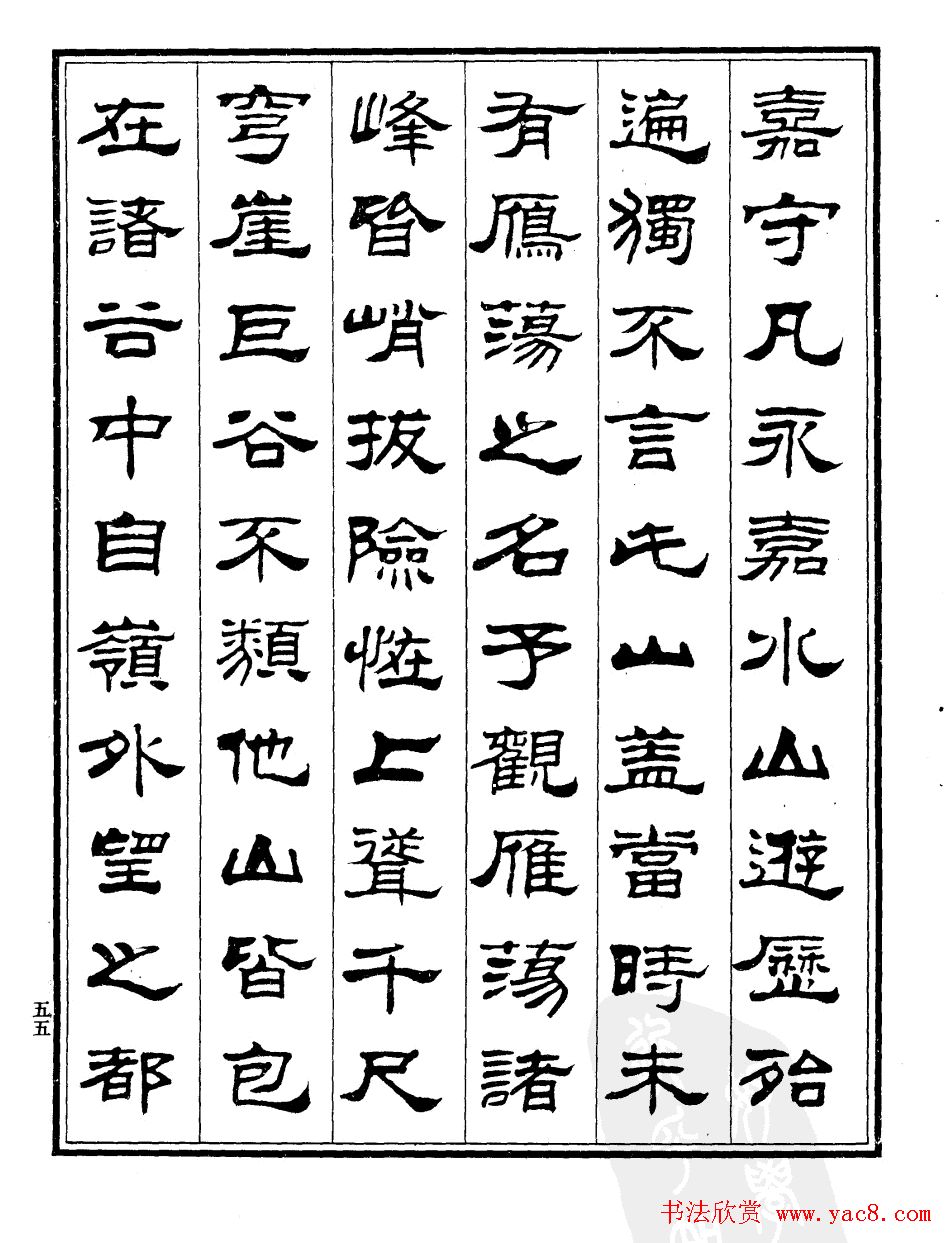 嘉守凡永嘉水山遊歷殆
遍獨不言此山蓋當時未
有鴈蕩之名予觀雁蕩諸
峰皆峭拔險怪上聳千尺
穹崖巨谷不類他山皆包
在諸谷中自嶺外望之都
五五
书法欣赏 www.yac8.com